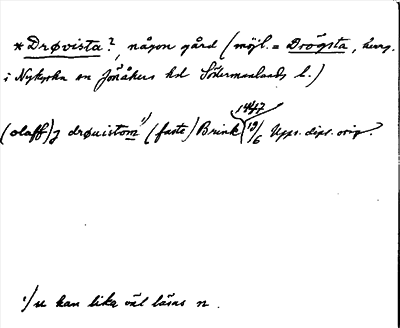 * Drøvista?, någon gård (möjl. = Drögsta, herrg.
i Nykyrka sn Jönåkers hd Södermanlands l.)
1447
(olaff) j drøuistom ¹⁾ (faste) Brink 19/6 Upps. dipl. orig.
¹/ u kan lika väl läsas n.